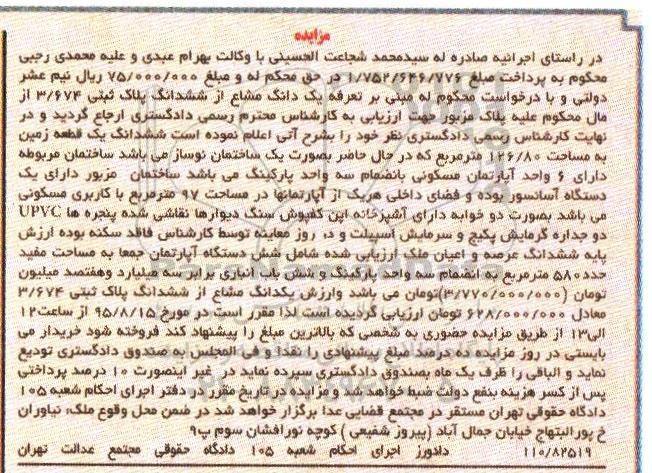 مزایده
در راستای اجرائیه صادره له سیدمحمد شجاعت الحسینی با وکالت بهرام عبدی و علیه محمدی رجبی
محکوم به پرداخت مبلغ ۱/۷۵۲/۶۴۶/۷۷۶ در حق محکم له و مبلغ ۷۵/۰۰۰/۰۰۰ ریال نیم عشر
دولتی و با درخواست محکوم له مبنی بر تعرفه یک دانگ مشاع از ششدانگ پلاک ثبتی ۳/۶۷۴ از
مال محکوم علیه پلاک مزبور جهت ارزیابی به کارشناس محترم رسمی دادگستری ارجاع گردید و در
نهایت کارشناس رسمی دادگستری نظر خود را بشرح آتی اعلام نموده است ششدانگ یک قطعه زمین
به مساحت ۱۲۶/۸۰ مترمربع که در حال حاضر بصورت یک ساختمان نوساز می باشد ساختمان مربوطه
دارای ۶ واحد آپارتمان مسکونی بانضمام سه واحد پارکینگ می باشد ساختمان مزبور دارای یک
دستگاه آسانسور بوده و فضای داخلی هریک از آپارتمانها در مساحت ۹۷ مترمربع با کاربری مسکونی
می باشد بصورت دو خوابه دارای آشپزخانه اپن کفپوش سنگ دیوارها نقاشی شده پنجره ها UPVC
دو جداره گرمایش پکیج و سرمایش اسپیلت و در روز معاینه توسط کارشناس فاقد سکنه بوده ارزش
پایه ششدانگ عرصه و اعیان ملک ارزیابی شده شامل شش دستگاه آپارتمان جمعا به مساحت مفید
حدد ۵۸۰ مترمربع به انضمام سه واحد پارکینگ و شش باب انباری برابر سه میلیارد وهفتصد میلیون
تومان (۳/۷۷۰/۰۰۰/۰۰۰)تومان می باشد وارزش یکدانگ مشاع از ششدانگ پلاک ثبتی ۳/۶۷۴
معادل ۶۲۸/۰۰۰/۰۰۰ تومان ارزیابی گردیده است لذا مقرر است در مورخ ۹۵/۸/۱۵ از ساعت ۱۲
الی ۱۳ از طریق مزایده حضوری به شخصی که بالاترین مبلغ را پیشنهاد کند فروخته شود خریدار می
بایستی در روز مزایده ده درصد مبلغ پیشنهادی را نقدا و فی المجلس به صندوق دادگستری تودیع
نماید و الباقی را ظرف یک ماه بصندوق دادگستری سپرده نماید در غیر اینصورت ۱۰ درصد پرداختی
پس از کسر هزینه بنفع دولت ضبط خواهد شد و مزایده در تاریخ مقرر در دفتر اجرای احکام شعبه ۱۰۵
دادگاه حقوقی تهران مستقر در مجتمع قضایی عدا برگزار خواهد شد در ضمن محل وقوع ملک؛ نیاوران
خ پور ابتهاج خیابان جمال آباد (پیروز شفیعی ) کوچه نورافشان سوم پ۹
۱۱۰/۸۲۵۱۹ دادورز اجرای احکام شعبه ۱۰۵ دادگاه حقوقی مجتمع عدالت تهران